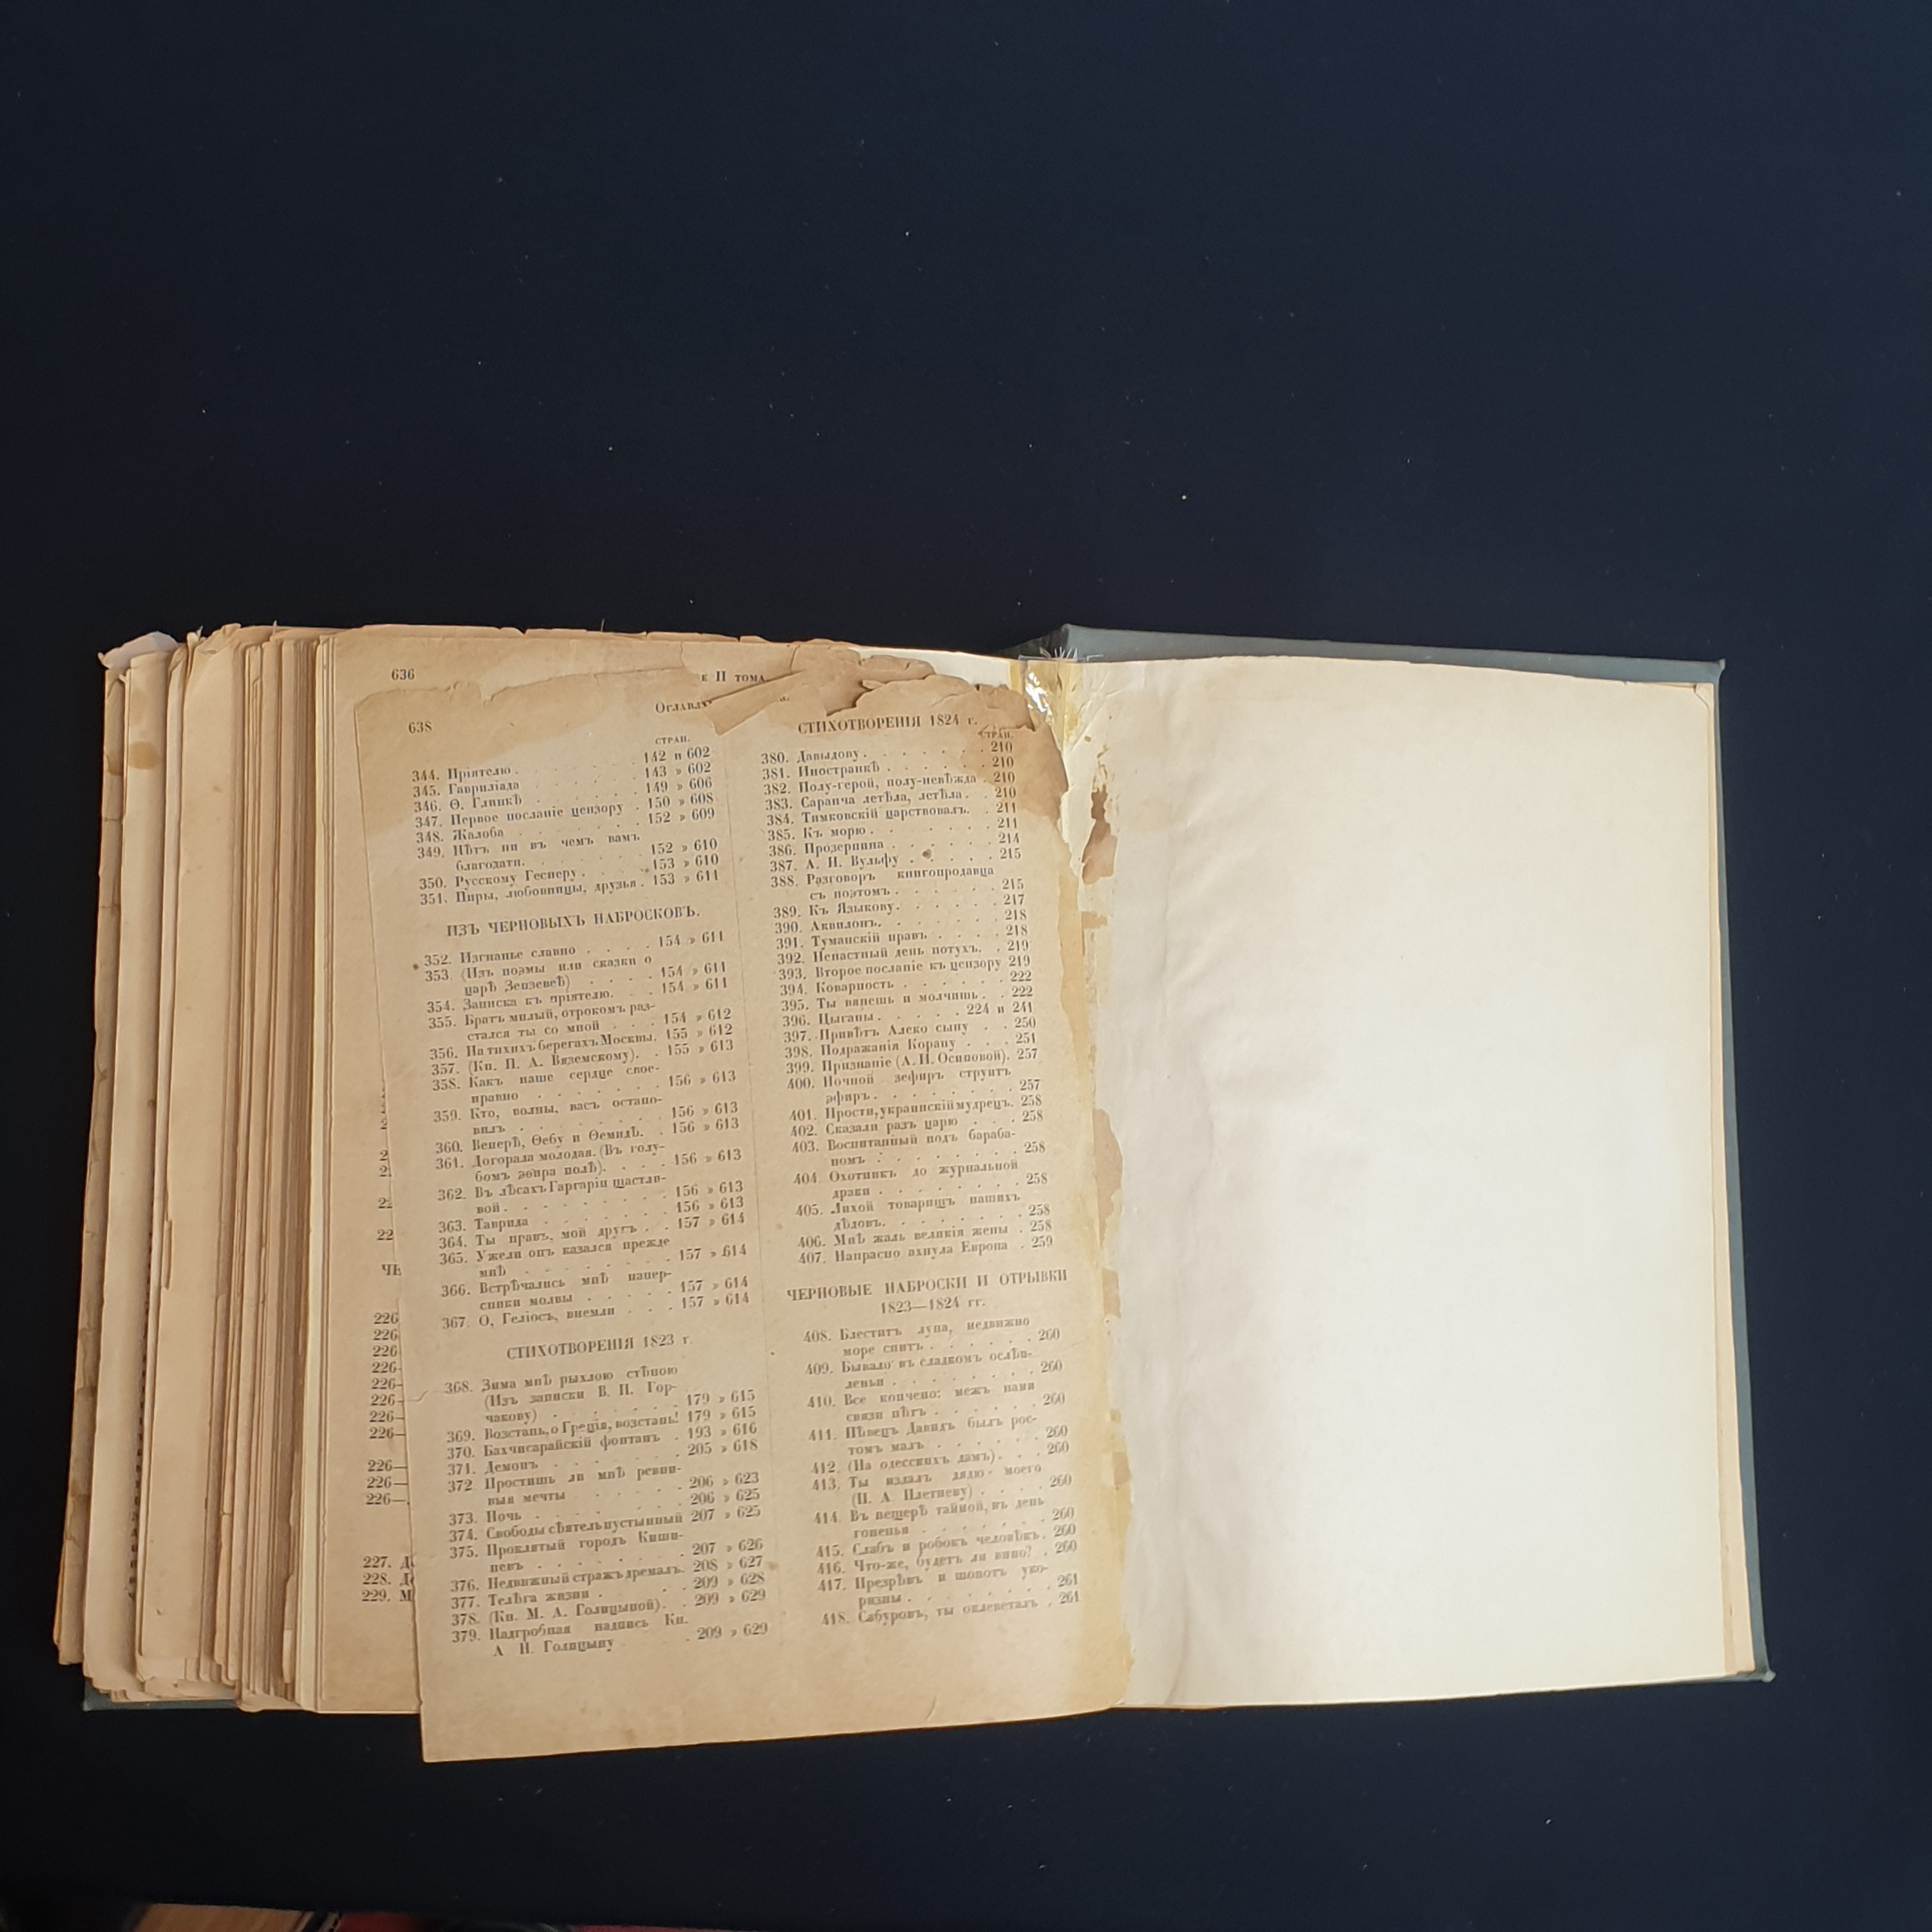 636
е II тома
638
СТРАН.
142 и 602
344. Пріятелю . . . . . . 143 » 602
345. Гавриліада . . . . . 149 » 606
346. Ѳ. Глинкѣ . . . . . 150 » 608
347. Первое посланіе цензору . 152 » 609
348. Жалоба
349. Нѣтъ ни въ чемъ вамъ
благодати. . . . . . 152 » 610
350. Русскому Гесперу . . . . 153 » 610
351. Пиры, любовницы, друзья . 153 » 611
ИЗЪ ЧЕРНОВЫХЪ НАБРОСКОВЪ.
352. Изгнанье славно . . . . 154 » 611
353. (Изъ поэмы или сказки о
царѣ Зензевеѣ) . . . . 154 » 611
354. Записка къ пріятелю. . . 154 » 611
355. Братъ милый, отрокомъ раз-
стался ты со мной . . . 154 » 612
356. На тихихъ берегахъ Москвы. 155 » 612
357. (Кн. П. А. Вяземскому). . 155 » 613
358. Какъ наше сердце свое-
нравно . . . . . . 156 » 613
359. Кто, волны, васъ остано-
вилъ . . . . . . . 156 » 613
360. Венерѣ, Ѳебу и Ѳемидѣ. . 156 » 613
361. Догорала молодая. (Въ голу-
бомъ эѳира полѣ). . . . 156 » 613
362. Въ лѣсахъ Гаргаріи щастли-
вой . . . . . . . . 156 » 613
363. Таврида . . . . . . 156 » 613
364. Ты правъ, мой другъ . . 157 » 614
365. Ужели онъ казался прежде
мнѣ . . . . . . . . 157 » 614
366. Встрѣчались мнѣ напер-
сники молвы . . . . . 157 » 614
367. О, Геліосъ, внемли . . . 157 » 614
СТИХОТВОРЕНІЯ 1823 г.
368. Зима мнѣ рыхлою стѣною
(Изъ записки В. П. Гор-
чакову) . . . . . . 179 » 615
369. Возстань, о Греція, возстань! 179 » 615
370. Бахчисарайскій фонтанъ . 193 » 616
371. Демонъ . . . . . . 205 » 618
372 Простишь ли мнѣ ревни-
выя мечты . . . . . 206 » 623
373. Ночь . . . . . . . 206 » 625
374. Свободы сѣятель пустынный 207 » 625
375. Проклятый городъ Киши-
невъ . . . . . . . 207 » 626
376. Недвижный стражъ дремалъ. 208 » 627
377. Телѣга жизни . . . . 209 » 628
378. (Кн. М. А. Голицыной). . 209 » 629
379. Надгробная надпись Кн.
А Н. Голицыну . 209 » 629
СТИХОТВОРЕНІЯ 1824 г.
СТРАН.
380. Давыдову . . . . . . . 210
381. Иностранкѣ . . . . . . 210
382. Полу-герой, полу-невѣжда . 210
383. Саранча летѣла, летѣла. . 210
384. Тимковскій царствовалъ. . 211
385. Къ морю . . . . . . . 211
386. Прозерпина . . . . . . 214
387. А. Н. Вульфу . . . . . 215
388. Разговоръ книгопродавца
съ поэтомъ . . . . . . 215
389. Къ Языкову. . . . . . 217
390. Аквилонъ. . . . . . . 218
391. Туманскій правъ . . . . 218
392. Ненастный день потухъ. . 219
393. Второе посланіе къ цензору 219
394. Коварность . . . . . . 222
395. Ты вянешь и молчишь. . 222
396. Цыганы . . . . . 224 и 241
397. Привѣтъ Алеко сыну . . 250
398. Подражанія Корану . . . 251
399. Признаніе (А. И. Осиповой). 257
400. Ночной зефиръ струитъ
эфиръ . . . . . . . 257
401. Прости, украинскій мудрецъ. 258
402. Сказали разъ царю . . . 258
403. Воспитанный подъ бараба-
номъ . . . . . . . . 258
404. Охотникъ до журнальной
драки . . . . . . . 258
405. Лихой товарищъ нашихъ
дѣдовъ. . . . . . . . 258
406. Мнѣ жаль великія жены . 258
407. Напрасно ахнула Европа . 259
ЧЕРНОВЫЕ НАБРОСКИ И ОТРЫВКИ
1823—1824 гг.
408. Блеститъ луна, недвижно
море спитъ . . . . . 260
409. Бывало въ сладкомъ ослѣп-
леньи . . . . . . . 260
410. Все кончено: межъ нами
связи нѣтъ . . . . . . 260
411. Пѣвецъ Давидъ былъ рос-
томъ малъ . . . . . . 260
412. (На одесскихъ дамъ). . . 260
413. Ты издалъ дядю моего
(П. А. Плетневу) . . . . 260
414. Въ пещерѣ тайной, въ день
гоненья . . . . . . . 260
415. Слабъ и робокъ человѣкъ. 260
416. Что-же, будетъ ли вино? . 260
417. Презрѣвъ и шопотъ уко-
ризны . . . . . . . 261
418. Сабуровъ, ты оклеветалъ . 261
22
22
ЧЕ
226
226
226
226-
226-
226-
226-
226-
226—
226—
226—
227. Д
228. Д
229. М